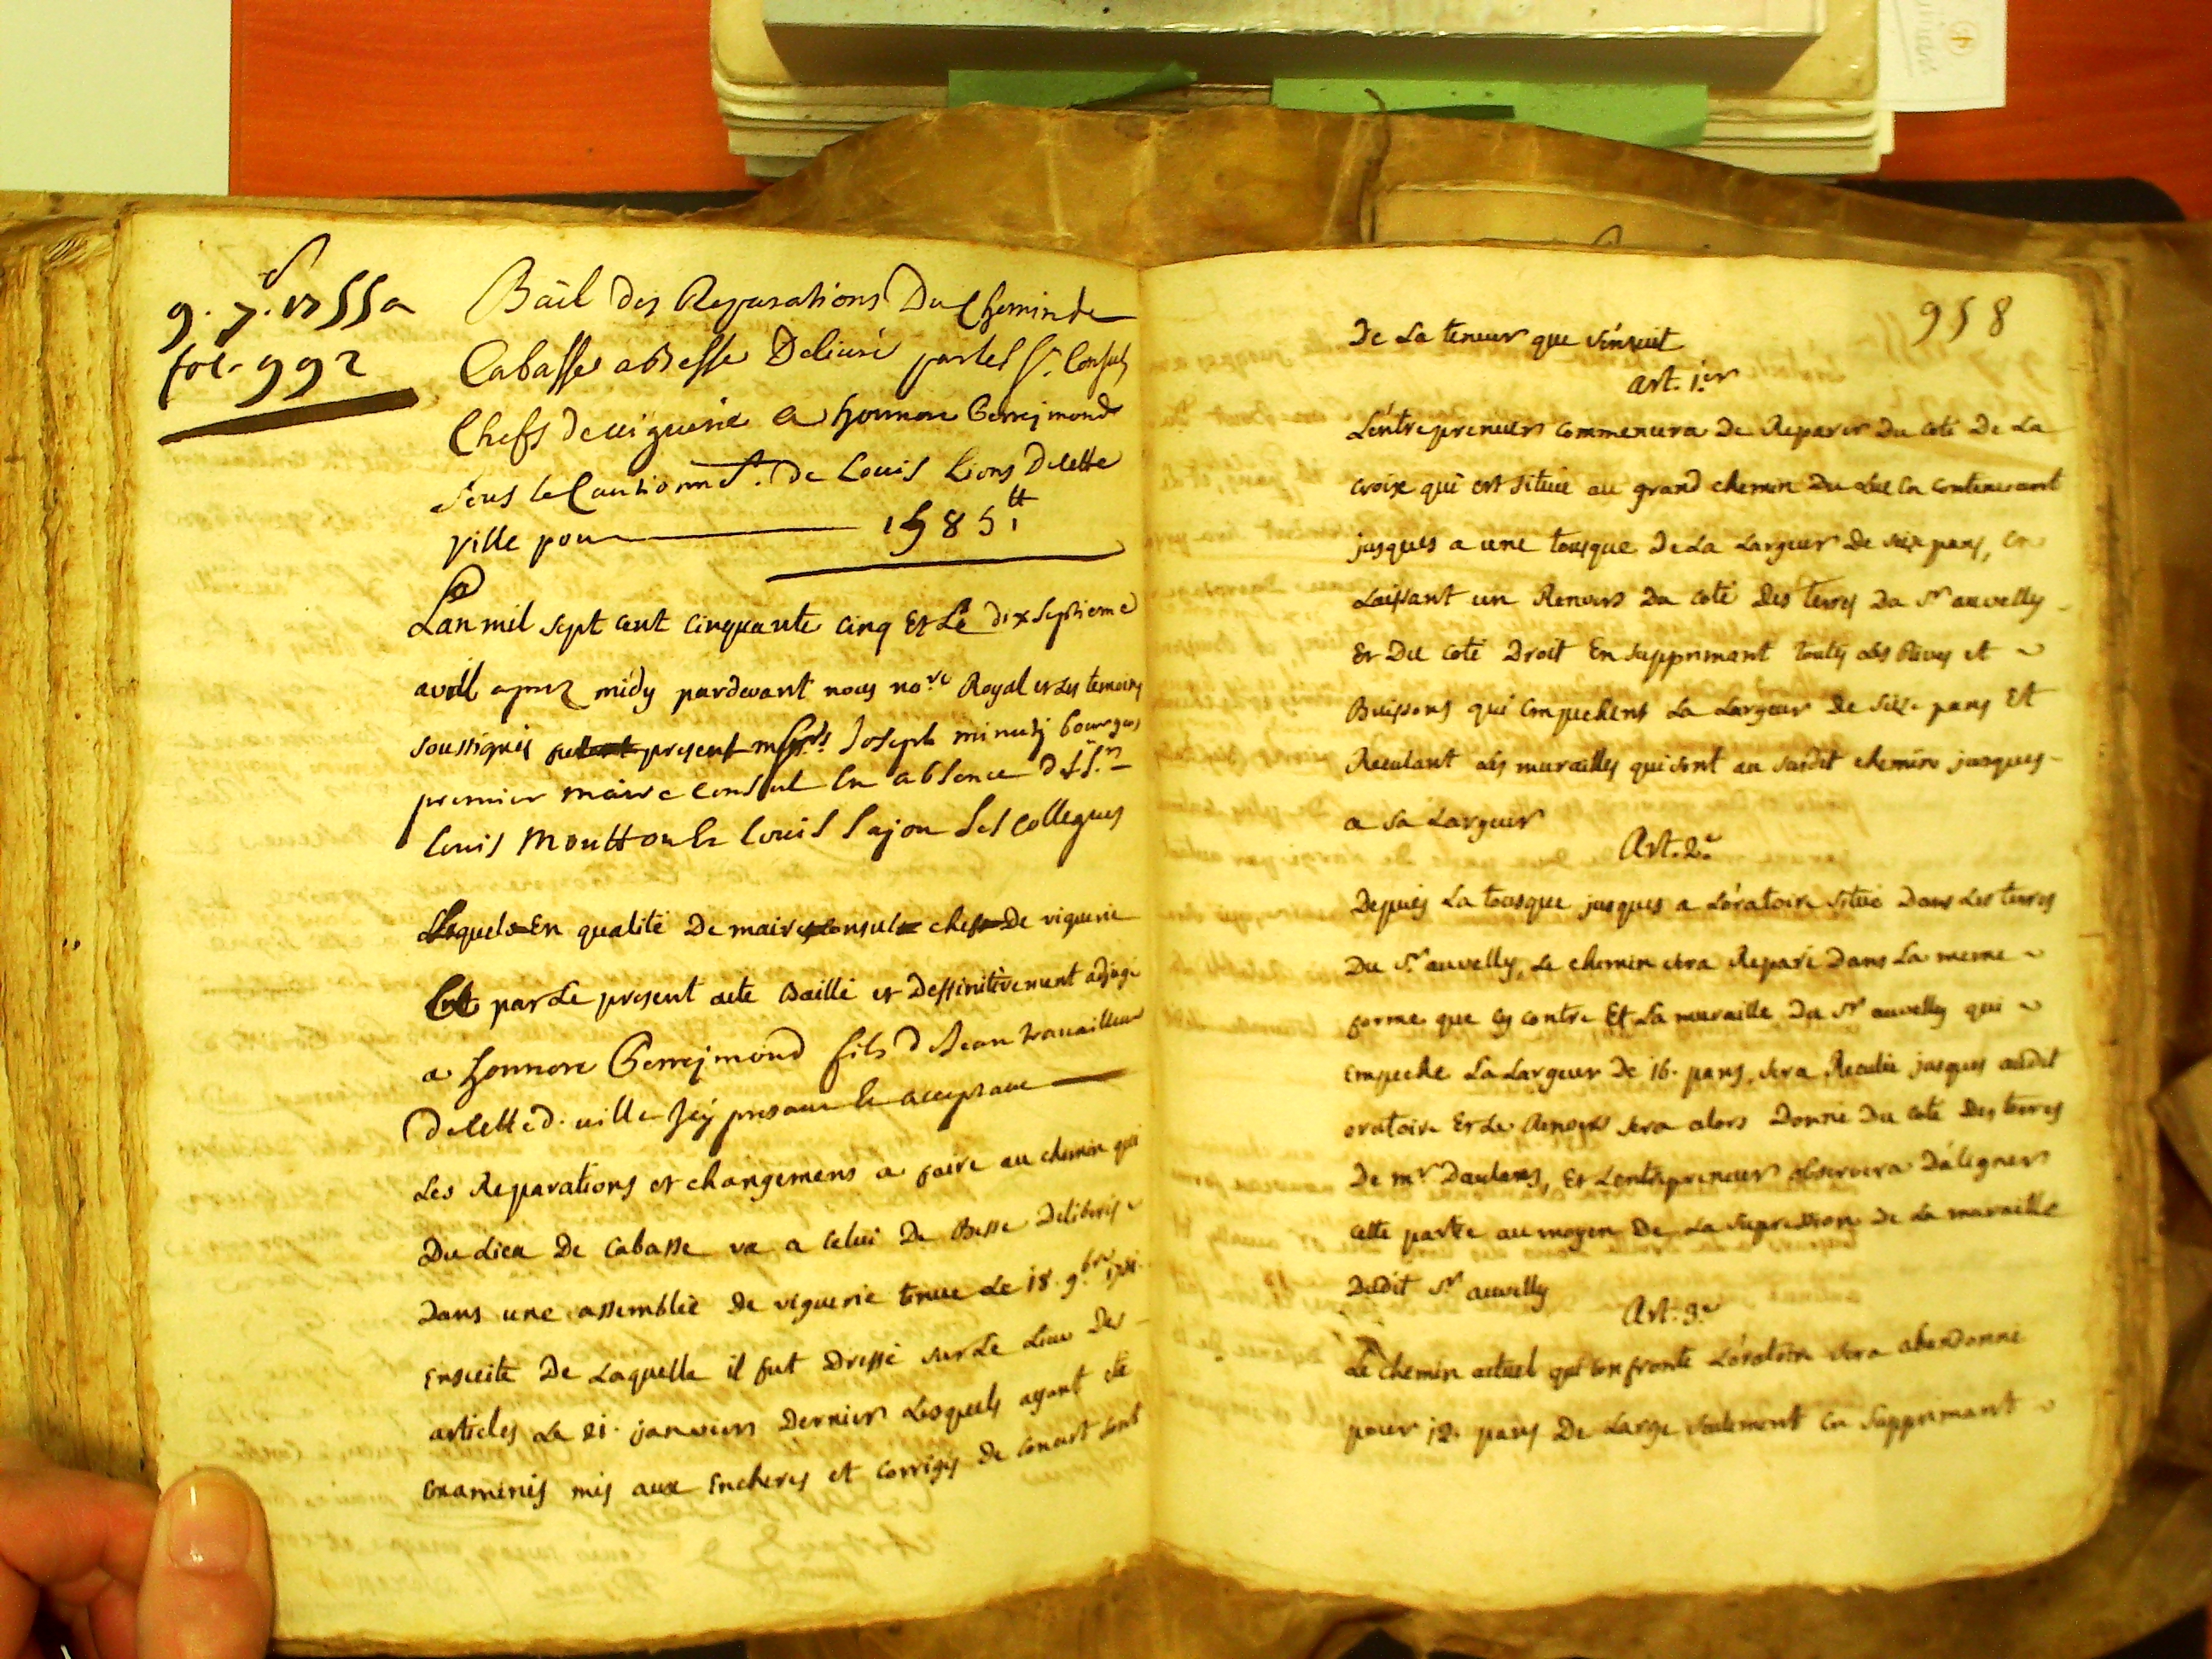 9. 7. 1755 a
fol. 992
Bail des Reparations Du Chemin de
Cabasse a Besse Deliuré par les Srs. Consuls
Chefs de uiguerie a honnore Gerrejmond
sous le Cautionnt. De Louis Lions De cette
ville pour 1585 tt
Lan mil sept cent cinquante cinq Et Le dix septieme
avril aprez midy pardevant nous nore Royal et les temoins
soussignés present Joseph minuty bourgeois
premier maire Consul En absence des Srs.
Louis Moutton Et Louis Sajou ses collegues
Lesquels En qualité De maires consuls chefs De viguerie
par Le present acte Baillé et Deffinitivement adjugé
a honnore Gerrejmond fils de Jean travailleur
De cette d. uille Jcy present Et acceptant
Les Reparations et changemens a faire au chemin qui
Du Lieu De Cabasse va a Celui De Besse Deliberés
Dans une assemblée De viguerie tenue Le 18. 9bre
Ensuite De Laquelle il fut Dressé sur Le Lieu Des
articles Le 21. janviers Dernier Lesquels ayant été
Examinés mis aux Encheres et Corrigés De Concert sont
958
De La teneur que s'ensuit
art. 1er
L'entrepreneur commencera De Reparer Du coté De La
croix qui est située au grand chemin Du Luc En continuant
jusques a une tousque De La Largeur De seize pans, En
Laissant un Renvers Du coté Des terres Du Sr auvelly
Et Du coté Droit En supprimant touts Les Rives et
Buissons qui Empechent La Largeur De seize pans Et
Reculant Les murailles qui sont au susdit chemin jusques
a sa Largeur
Art. 2e
Depuis La tousque jusques a L'oratoire situé Dans Les terres
Du Sr auvelly, Le chemin sera Reparé Dans La meme
forme que cy contre Et La muraille Du Sr auvelly qui
Empeche La Largeur De 16. pans, sera Reculée jusques audit
oratoire Et Le Renvers sera alors Donné Du coté Des terres
De mr Daulans, Et L'entrepreneur observera D'aligner
cette partie au moyen De La supression De La muraille
Dudit Sr auvelly
Art. 3e
Le chemin actuel qui Confronte L'oratoire sera abandonné
pour 12. pans De Large seulement En supprimant